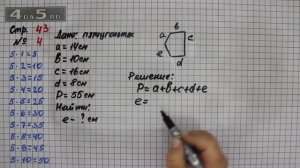 4DA5.RU
Стр. 43
№ 4
5·1=5
5·2=10
5·3=15
5·4=20
5·5=25
5·6=30
5·7=35
5·8=40
5·9=45
5·10=50
Дано: пятиугольник
a = 14см
b = 10см
c = 16см
d = 8см
P = 55см
Найти:
e - ? см
a
b
c
d
e
Решение:
P = a+b+c+d+e
e =